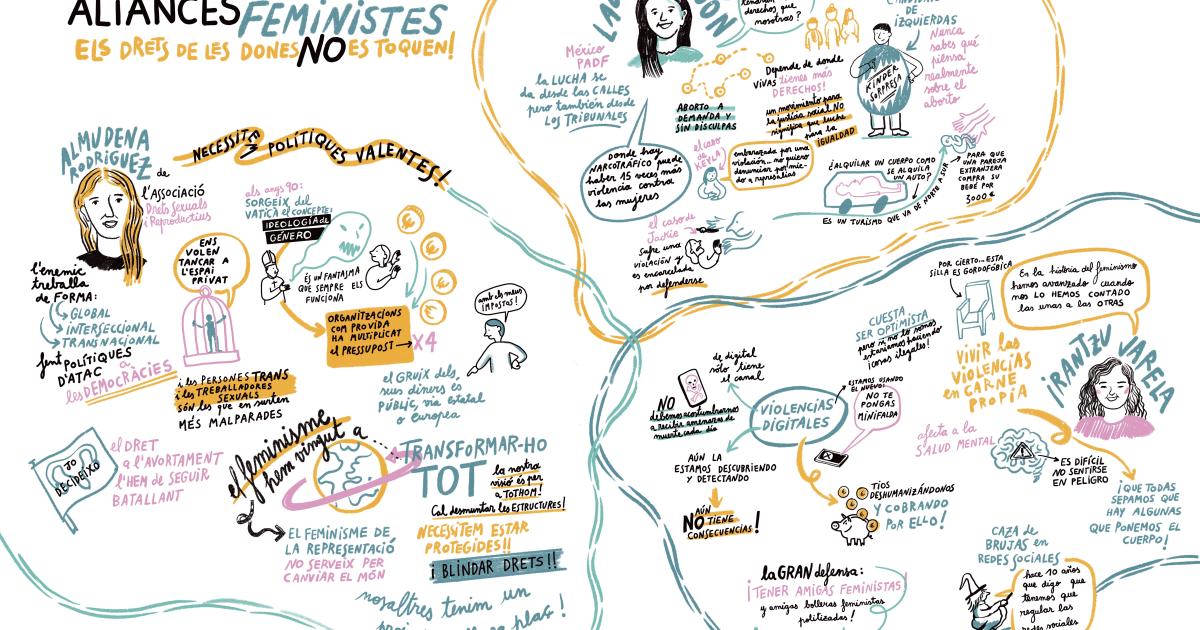 ALIANCES FEMINISTES
ELS DRETS DE LES DONES NO ES TOQUEN!
ALMUDENA
RODRIGUEZ
de
l'ASSOCIACIÓ
Drets Sexuals
i Reproductius
NECESSITEM POLÍTIQUES VALENTES!
l'enemic
treballa
de FORMA:
GLOBAL
INTERSECCIONAL
TRANSNACIONAL
fent POLÍTIQUES
D'ATAC a
les DEMOCRÀCIES
ENS
VOLEN
TANCAR A
L'ESPAI
PRIVAT
i les PERSONES TRANS
i les TREBALLADORES
SEXUALS
SÓN les que en surten
MÉS MALPARADES
als anys 90:
SORGEIX del
VATICÀ el CONCEPTE:
IDEOLOGIA de
GÉNERO
ÉS UN FANTASMA
QUE SEMPRE ELS
FUNCIONA
ORGANITZACIONS
COM PROVIDA
HA MULTIPLICAT
el PRESSUPOST → X4
amb els meus
IMPOSTOS!
el GRUIX dels
seus diners és
PÚBLIC, via estatal
o europea
JO
DECIDEIXO
el DRET
a l'AVORTAMENT
l'HEM de SEGUIR
BATALLANT
el feminisme
hem vingut a
TRANSFORMAR-HO
TOT
la nostra
visió és per
a TOTHOM!
Cal desmuntar les ESTRUCTURES!
EL FEMINISME DE
LA REPRESENTACIÓ
NO SERVEIX PER
CANVIAR EL MÓN
NECESSITEM ESTAR
PROTEGIDES!!
i BLINDAR DRETS!!
nosaltres tenim un
México
PADF
la LUCHA se
da desde las CALLES
pero también desde
LOS TRIBUNALES
derechos, que
nosotras?
DE
IZQUIERDAS
Nunca
sabes qué
piensa
realmente
sobre el
aborto
KINDER
SORPRESA
Depende de donde
VIVAS tienes más
DERECHOS!
ABORTO A
DEMANDA Y
SIN DISCULPAS
un movimiento para
la justicia social NO
significa que luche
para la
IGUALDAD
donde hay
NARCOTRÁFICO puede
haber 15 veces más
violencia contra
las mujeres
el caso
de
KEYLA
embarazada por una
violación... no quiero
denunciar por mie-
do a represalias
el caso de
Jackie
Sufre una
VIOLACIÓN y
es encarcelada
por defenderse
¿ALQUILAR UN CUERPO COMO
SE ALQUILA
UN AUTO?
ES UN TURISMO QUE VA DE NORTE A SUR
PARA QUE
UNA PAREJA
EXTRANJERA
COMPRA SU
BEBÉ POR
3000 €
POR CIERTO... ESTA
SILLA ES GORDOFÓBICA
En la historia del feminismo
hemos avanzado cuando
nos LO HEMOS CONTADO
las unas a las OTRAS
IRANTZU VARELA
CUESTA
SER OPTIMISTA
pero si no lo somos
estaríamos haciendo
cosas ilegales!
VIVIR las
VIOLENCIAS
en CARNE
PROPIA
de digital
sólo tiene
el canal
VIOLENCIAS
DIGITALES
ESTAMOS USANDO
EL NUEVO:
NO TE
PONGAS
MINIFALDA
NO
debemos acostumbrarnos
a recibir amenazas de
muerte cada día
AÚN LA
ESTAMOS DESCUBRIENDO
Y DETECTANDO
AÚN
NO TIENE
CONSECUENCIAS!
TIOS
DESHUMANIZÁNDONOS
Y COBRANDO
POR ELLO!
afecta a la
SALUD MENTAL
ES DIFÍCIL
NO SENTIRSE
EN PELIGRO
¡QUE TODAS
SEPAMOS QUE
HAY ALGUNAS
QUE PONEMOS EL
CUERPO!
la GRAN defensa:
¡TENER AMIGAS FEMINISTAS!
y amigas bolleras feministas
politizadas!
CAZA de
BRUJAS en
REDES SOCIALES
hace 10 años
que digo que
tenemos que
regular las
redes sociales